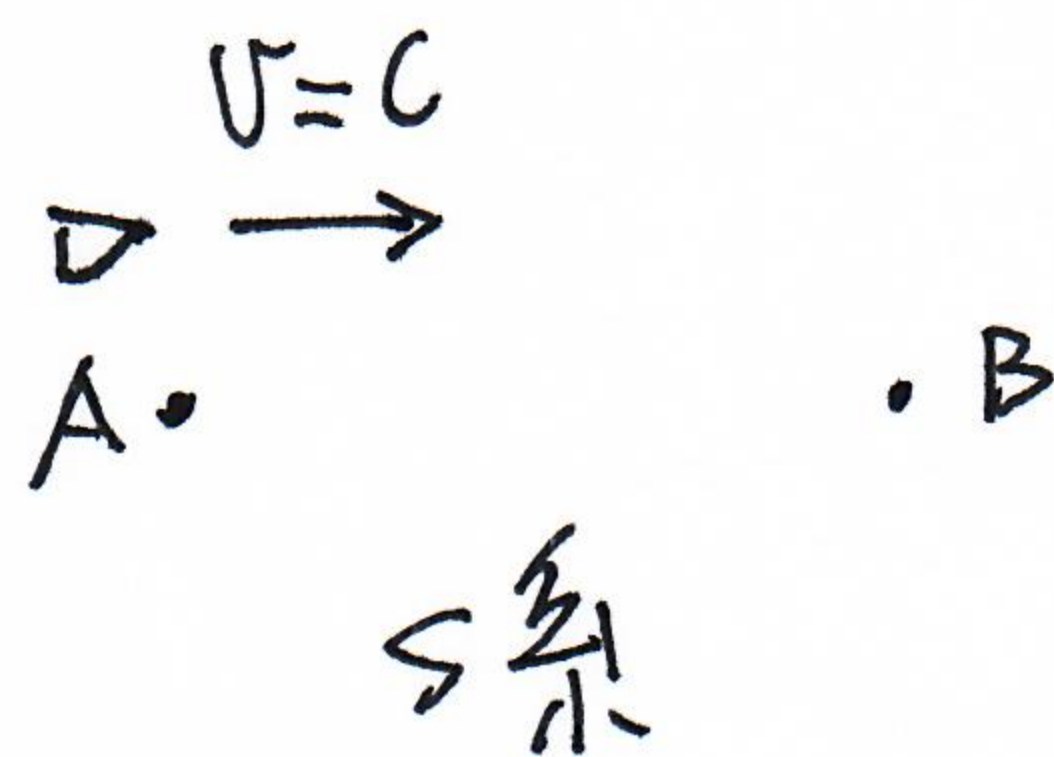 v=c
A
B
S系